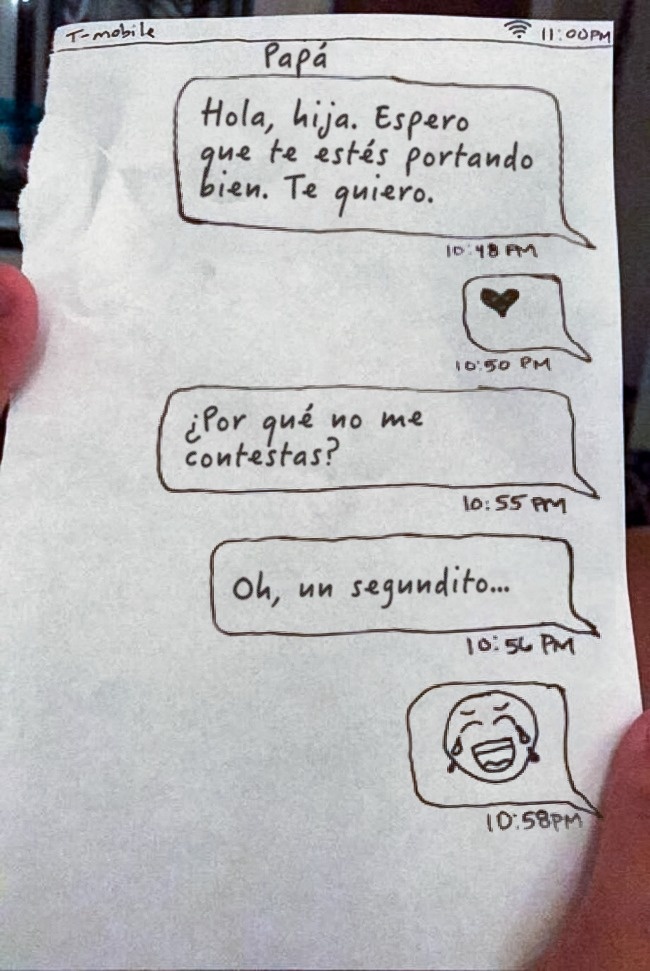 T-mobile 11:00PM
Papá
Hola, hija. Espero
que te estés portando
bien. Te quiero.
10:48 PM
10:50 PM
¿Por qué no me
contestas?
10:55 PM
Oh, un segundito...
10:56 PM
10:58PM